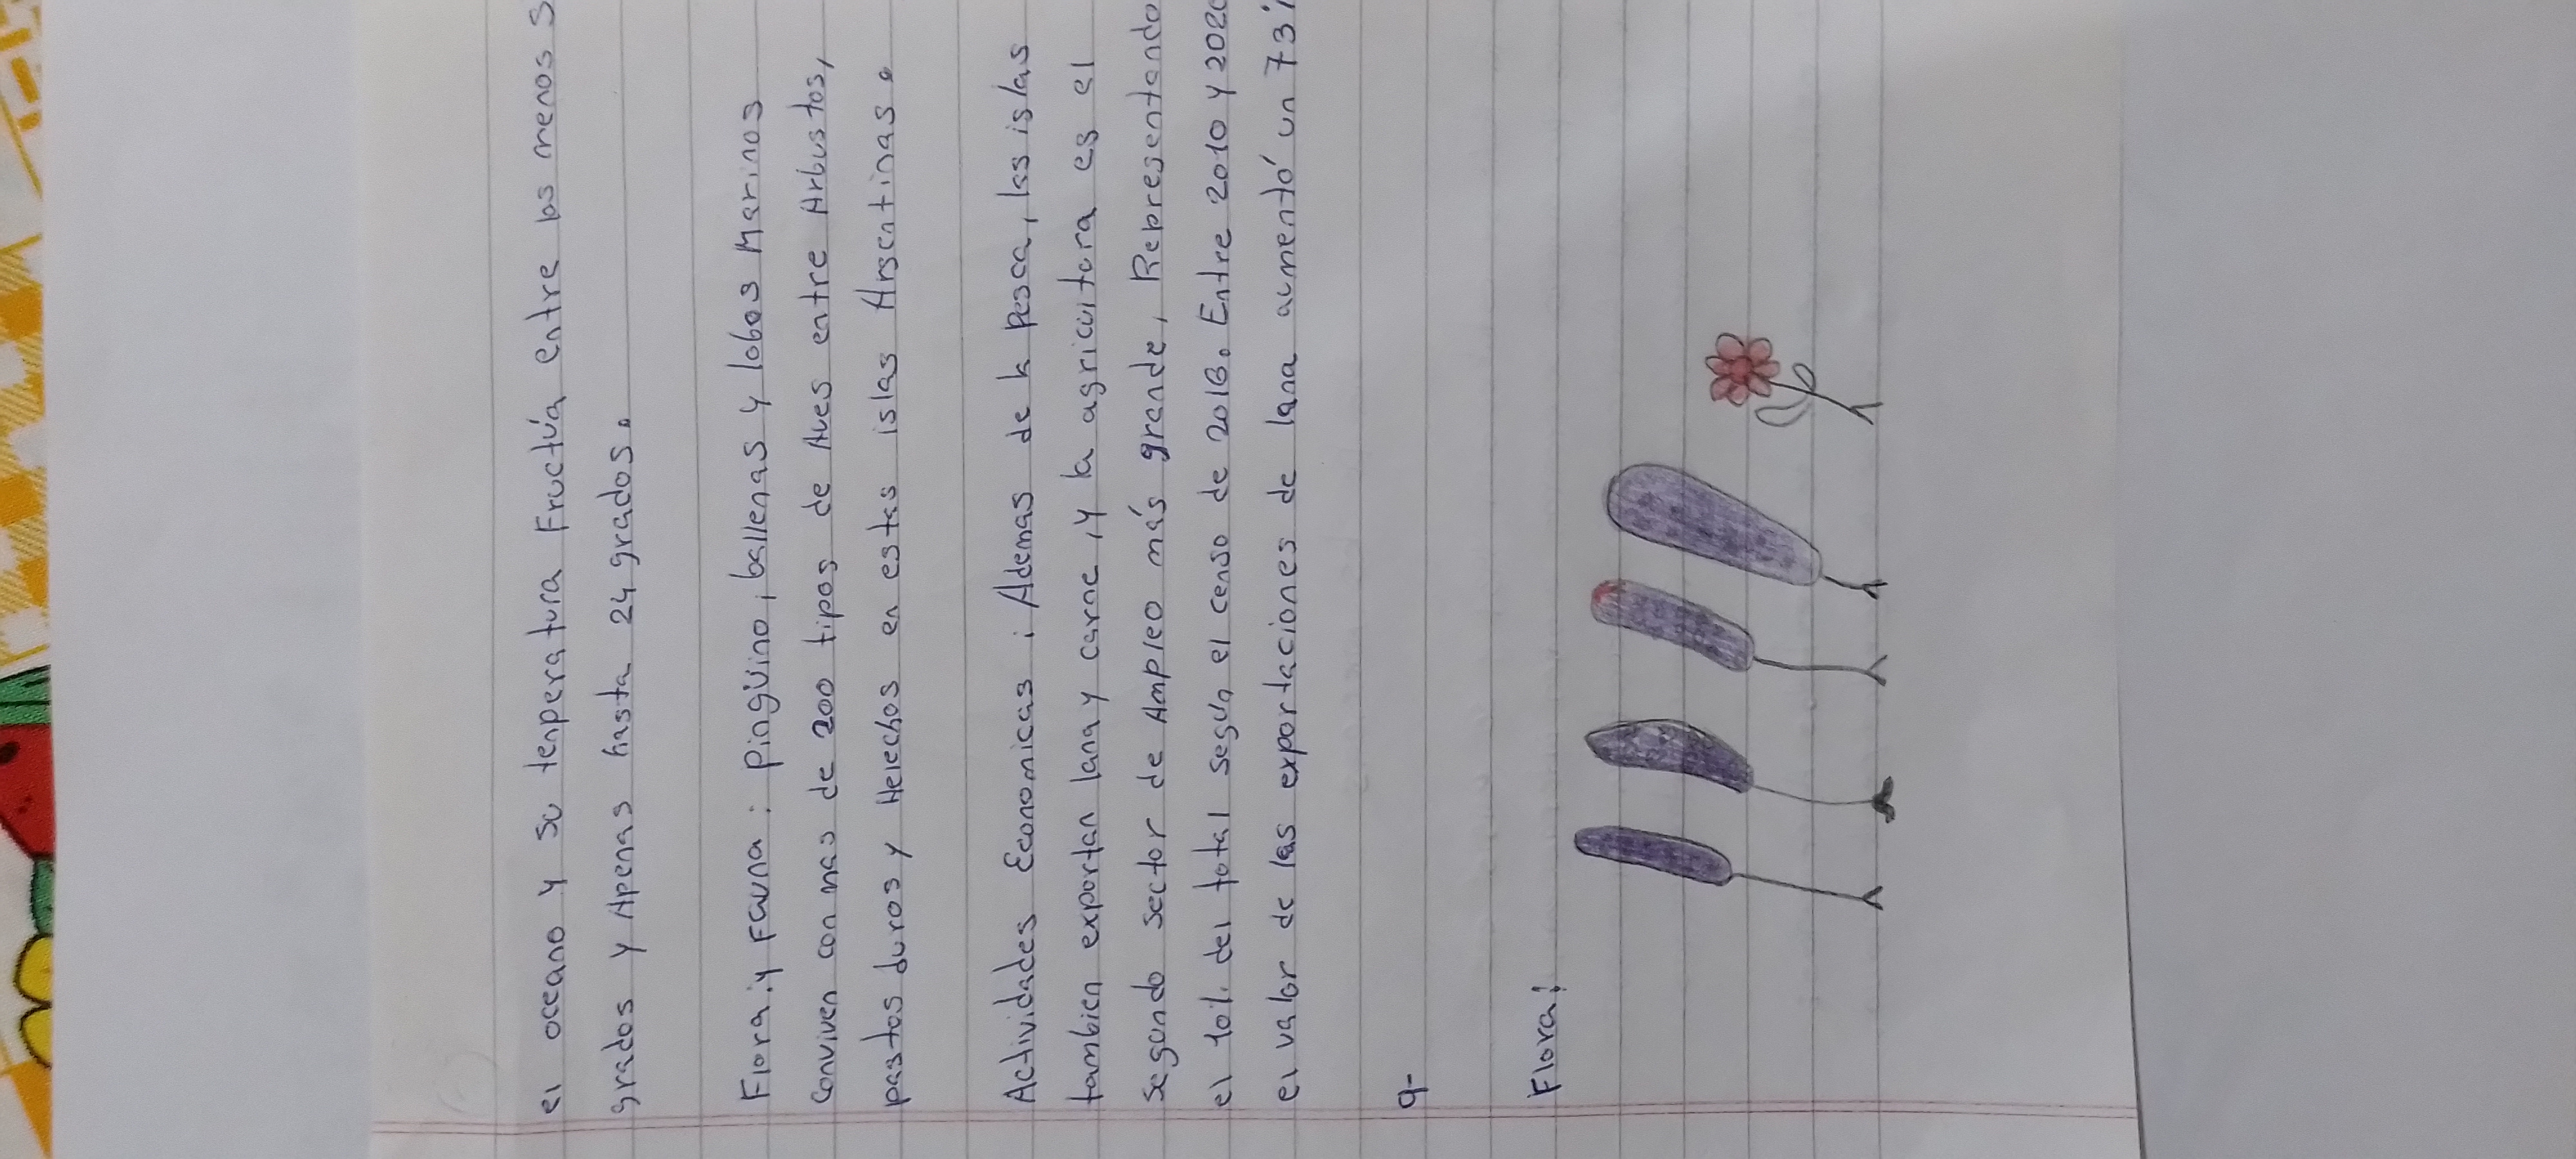 el oceano y su tenperatura Fructúa entre los menos 5
grados y Apenas hasta 24 grados.
Flora y Fauna: pingüino, ballenas y lobos Marinos
conviven con mas de 200 tipos de Aves entre Arbustos,
pastos duros y Helechos en estas islas Argentinas.
Actividades Economicas: Ademas de la pesca, las islas
tambien exportan lana y carne, y la agricultura es el
segundo sector de Ampleo más grande, Representando
el 10%. del total según el censo de 2016. Entre 2010 y 2020
el valor de las exportaciones de lana aumentó un 73%
9-
Flora: